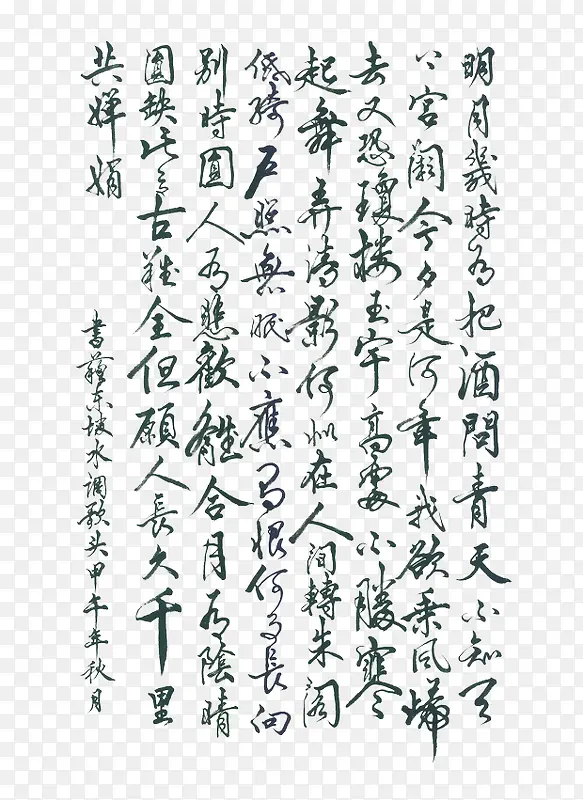 明月幾時有把酒問青天不知天
上宮闕今夕是何年我欲乘风歸
去又恐瓊樓玉宇高處不勝寒
起舞弄清影何似在人间轉朱阁
低綺户照無眠不應有恨何事長向
别時圓人有悲歡離合月有陰晴
圓缺此事古難全但願人長久千里
共嬋娟
書蘇东坡水调歌头甲午年秋月